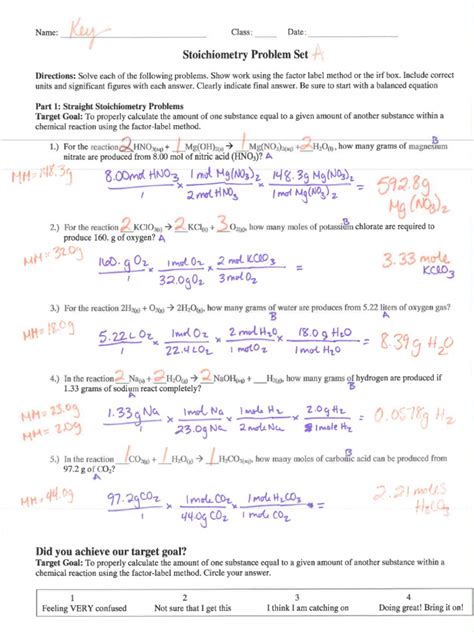 Name: Key Class: Date:
Stoichiometry Problem Set A
Directions: Solve each of the following problems. Show work using the factor label method or the irf box. Include correct
units and significant figures with each answer. Clearly indicate final answer. Be sure to start with a balanced equation
Part 1: Straight Stoichiometry Problems
Target Goal: To properly calculate the amount of one substance equal to a given amount of another substance within a
chemical reaction using the factor-label method.
B
1.) For the reaction 2 HNO3(aq) + 1 Mg(OH)2(s) → 1 Mg(NO3)2(aq) + 2 H2O(l), how many grams of magnesium
nitrate are produced from 8.00 mol of nitric acid (HNO3)? A
MM=148.3g
8.00mol HNO3 / 1 x 1 mol Mg(NO3)2 / 2 mol HNO3 x 148.3g Mg(NO3)2 / 1 mol Mg(NO3)2 = 592.8g Mg(NO3)2
B
2.) For the reaction 2 KClO3(s) → 2 KCl(s) + 3 O2(g), how many moles of potassium chlorate are required to
produce 160. g of oxygen? A
MM=32.0g
160. g O2 / 1 x 1 mol O2 / 32.0g O2 x 2 mol KClO3 / 3 mol O2 = 3.33 mole KClO3
3.) For the reaction 2H2(g) + O2(g) → 2H2O(g), how many grams of water are produced from 5.22 liters of oxygen gas?
B A
MM=18.0g
5.22 L O2 / 1 x 1 mol O2 / 22.4 L O2 x 2 mol H2O / 1 mol O2 x 18.0 g H2O / 1 mol H2O = 8.39g H2O
4.) In the reaction 2 Na(s) + 2 H2O(l) → 2 NaOH(aq) + H2(g), how many grams of hydrogen are produced if
B
1.33 grams of sodium react completely?
A
MM=23.0g
MM=2.0g
1.33g Na / 1 x 1 mol Na / 23.0g Na x 1 mole H2 / 2 mole Na x 2.0g H2 / 1 mole H2 = 0.0578g H2
5.) In the reaction 1 CO2(g) + 1 H2O(l) → 1 H2CO3(aq), how many moles of carbonic acid can be produced from
B
97.2 g of CO2?
A
MM=44.0g
97.2g CO2 / 1 x 1 mole CO2 / 44.0g CO2 x 1 mole H2CO3 / 1 mole CO2 = 2.21 moles H2CO3
Did you achieve our target goal?
Target Goal: To properly calculate the amount of one substance equal to a given amount of another substance within a
chemical reaction using the factor-label method. Circle your answer.
1 2 3 4
Feeling VERY confused Not sure that I get this I think I am catching on Doing great! Bring it on!